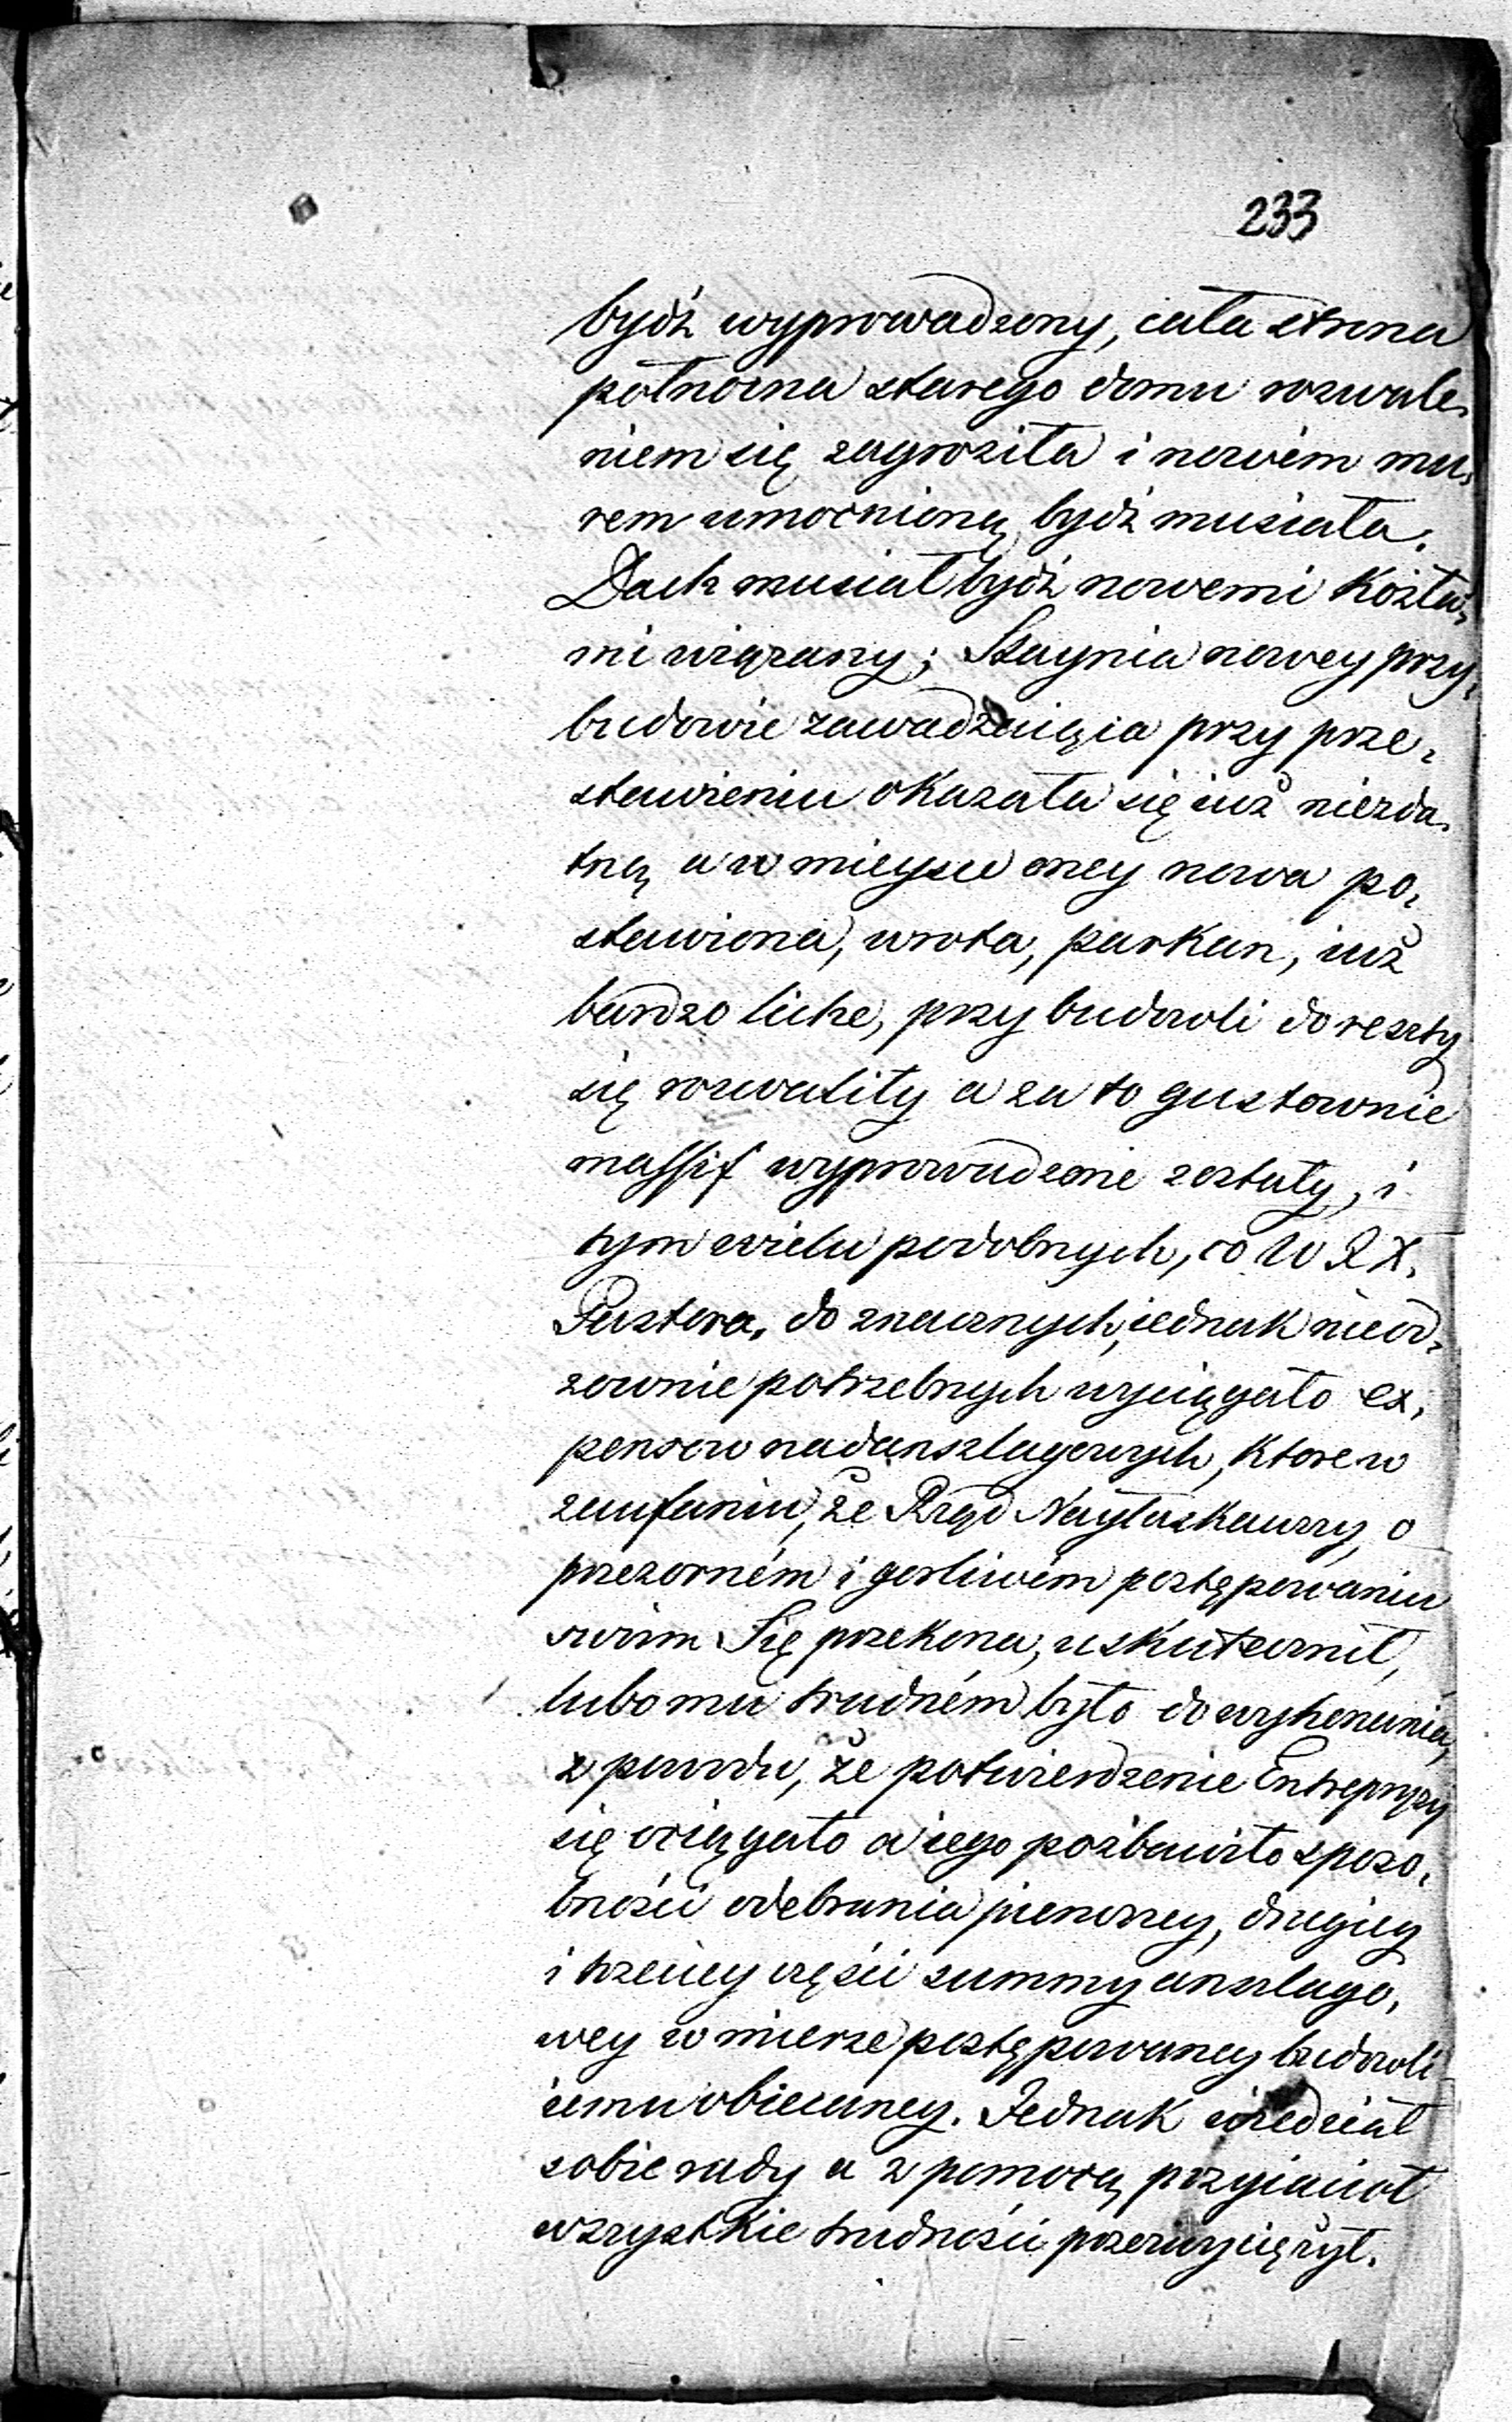 233
bydź wyprowadzony, cała strona
północna starego domu rozwale,
niem się zagroziła i nowém mu,
rem umocnioną bydź musiała.
Dach musiał bydź nowemi kozła,
mi wiązany; Staynia nowey przy,
budowie zawadzaiąca przy prze,
stawieniu okazała się iuż niezda,
tną a w mieyscu oney nowa po,
stawiona, wrota, parkan, iuż
bardzo liche, przy budowli do reszty
się rozwaliły a za to gustownie
massif wyprowadzone zostały, i
tym wielu podobnych, co W. J X.
Pastora, do znacznych, iednak nieod,
zownie potrzebnych wyciągało ex,
pensow nadanszlagowych, ktore w
zaufaniu, że Rząd Nayłaskawszy, o
przezorném i gorliwém postępowaniu
swim Się przekona, uskutecznił,
lubo mu trudném było do wykonania,
z powodu, że potwierdzenie Entrepryzy
się ociągało a iego pozbawiło sposo,
bności odebrania pierwszey, drugiey
i trzeciey części summy anszlago,
wey w mierze postępowaney budowli
iemu obiecaney. Jednak wiedział
sobie rady a z pomocą przyiaciół
wszystkie trudności przezwyciężył.